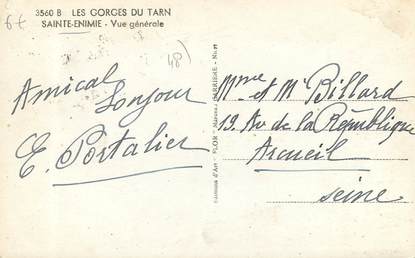 3560 B LES GORGES DU TARN
SAINTE-ENIMIE - Vue générale
6f
48)
Amical
bonjour
E. Portalier
"FLOR"
Mme et Mr Billard
19. Av de la République
Arcueil
Seine